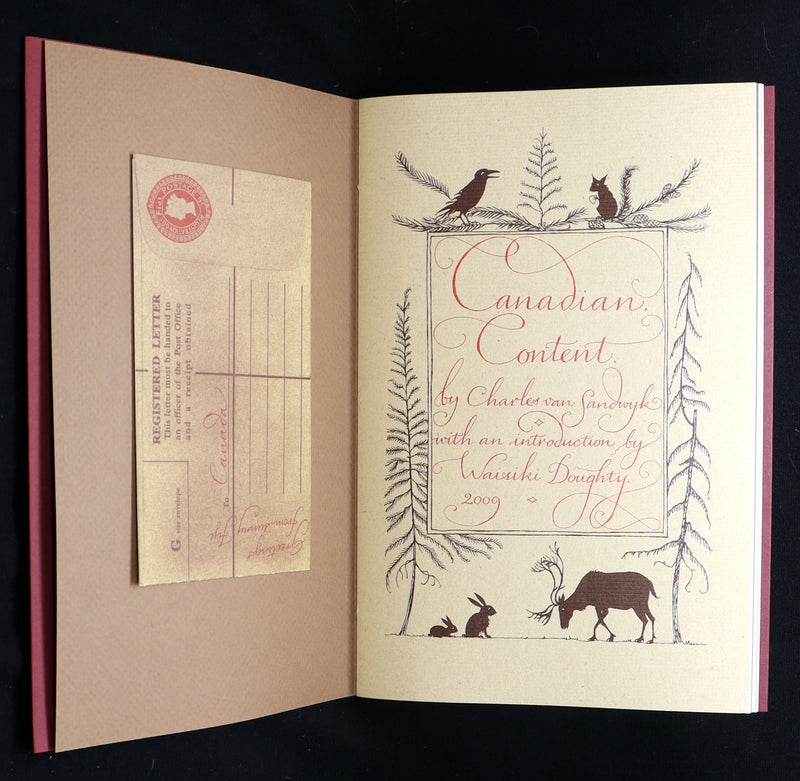 REGISTERED LETTER
This letter must be handed to
an officer of the Post Office
and a receipt obtained
G size envelope
To Canada
Greetings
from sunny Fiji
Canadian
Content
by Charles van Sandwyk
with an introduction by
Waisiki Doughty
2009